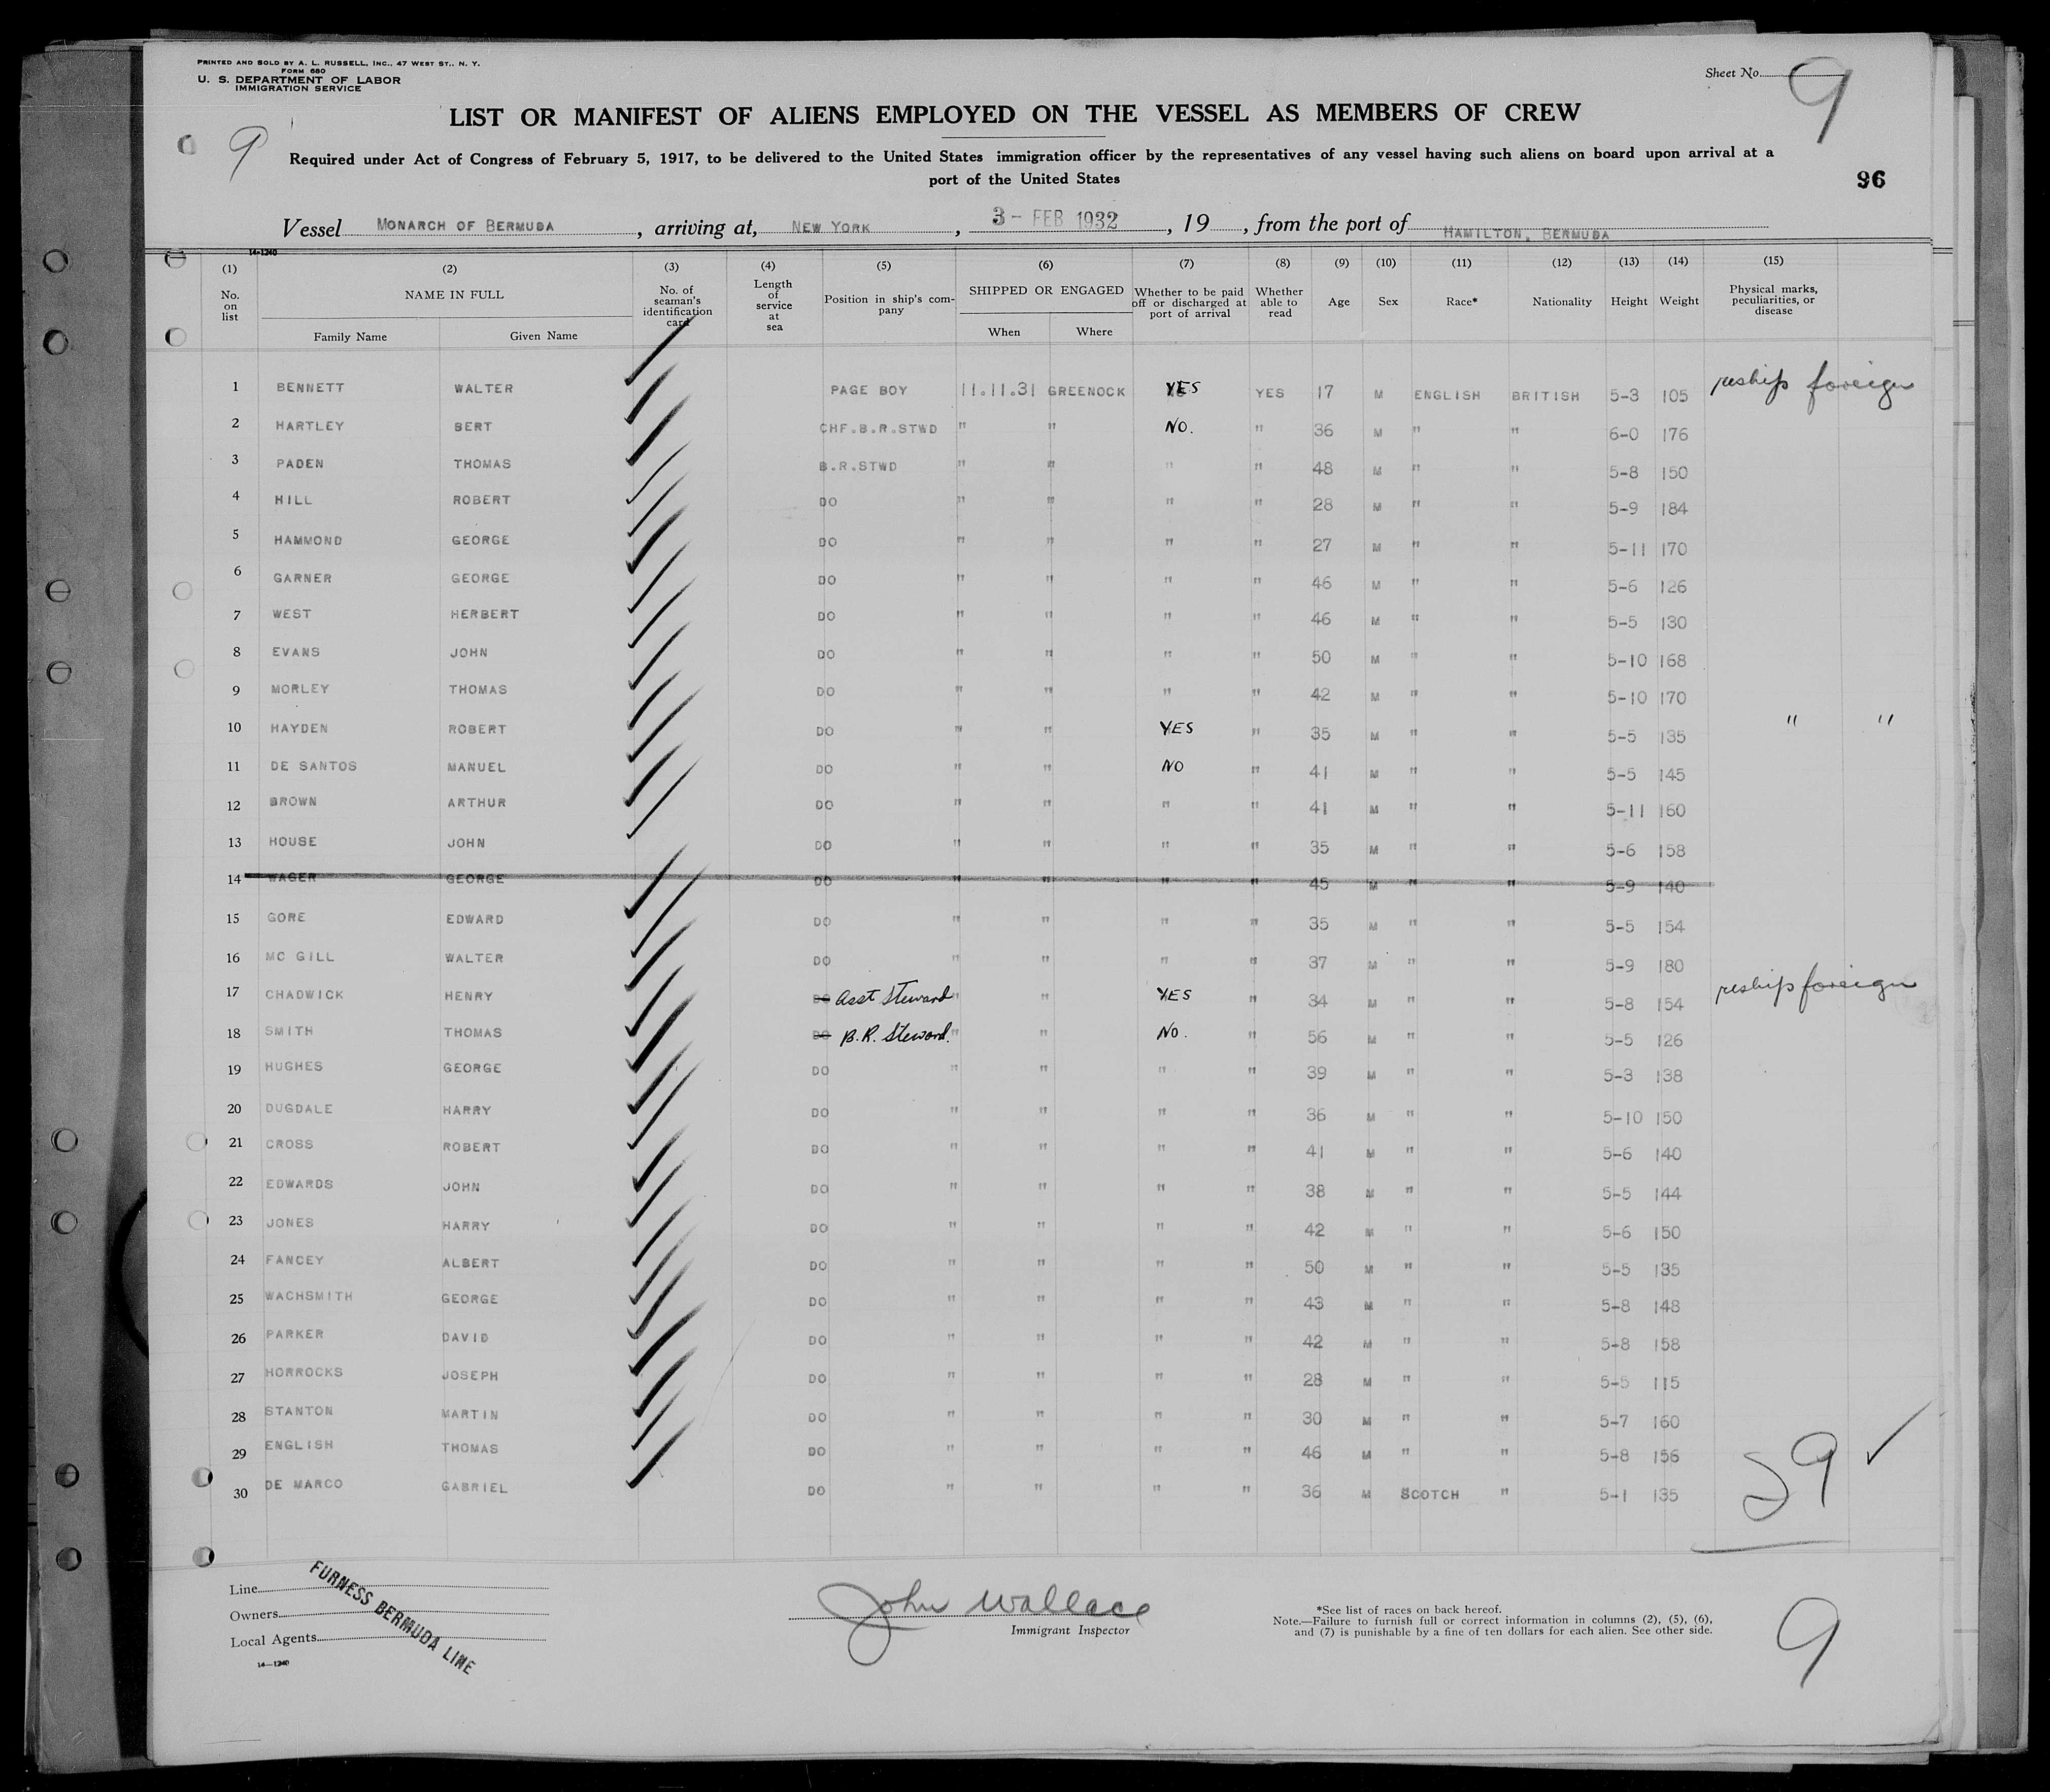 PRINTED AND SOLD BY A. L. RUSSELL, INC., 47 WEST ST., N. Y.
FORM 680
U. S. DEPARTMENT OF LABOR
IMMIGRATION SERVICE
Sheet No. 9
LIST OR MANIFEST OF ALIENS EMPLOYED ON THE VESSEL AS MEMBERS OF CREW
9
Required under Act of Congress of February 5, 1917, to be delivered to the United States immigration officer by the representatives of any vessel having such aliens on board upon arrival at a
port of the United States
96
Vessel MONARCH OF BERMUDA, arriving at, NEW YORK, 3- FEB 1932, 19, from the port of HAMILTON, BERMUDA
14-1240
(1) (2) (3) (4) (5) (6) (7) (8) (9) (10) (11) (12) (13) (14) (15)
No. on list NAME IN FULL Family Name Given Name No. of seaman's identification card Length of service at sea Position in ship's company SHIPPED OR ENGAGED When Where Whether to be paid off or discharged at port of arrival Whether able to read Age Sex Race* Nationality Height Weight Physical marks, peculiarities, or disease
1 BENNETT WALTER PAGE BOY 11.11.31 GREENOCK YES YES 17 M ENGLISH BRITISH 5-3 105 reship foreign
2 HARTLEY BERT CHF.B.R.STWD " " NO. " 36 M " " 6-0 176
3 PADEN THOMAS B.R.STWD " " " " 48 M " " 5-8 150
4 HILL ROBERT DO " " " " 28 M " " 5-9 184
5 HAMMOND GEORGE DO " " " " 27 M " " 5-11 170
6 GARNER GEORGE DO " " " " 46 M " " 5-6 126
7 WEST HERBERT DO " " " " 46 M " " 5-5 130
8 EVANS JOHN DO " " " " 50 M " " 5-10 168
9 MORLEY THOMAS DO " " " " 42 M " " 5-10 170
10 HAYDEN ROBERT DO " " YES " 35 M " " 5-5 135 " "
11 DE SANTOS MANUEL DO " " NO " 41 M " " 5-5 145
12 BROWN ARTHUR DO " " " " 41 M " " 5-11 160
13 HOUSE JOHN DO " " " " 35 M " " 5-6 158
14 WAGER GEORGE DO " " " " 45 M " " 5-9 140
15 GORE EDWARD DO " " " " 35 M " " 5-5 154
16 MC GILL WALTER DO " " " " 37 M " " 5-9 180
17 CHADWICK HENRY DO Asst Steward " " YES " 34 M " " 5-8 154 reship foreign
18 SMITH THOMAS DO B.R. Steward. " " NO. " 56 M " " 5-5 126
19 HUGHES GEORGE DO " " " " 39 M " " 5-3 138
20 DUGDALE HARRY DO " " " " 36 M " " 5-10 150
21 CROSS ROBERT DO " " " " 41 M " " 5-6 140
22 EDWARDS JOHN DO " " " " 38 M " " 5-5 144
23 JONES HARRY DO " " " " 42 M " " 5-6 150
24 FANCEY ALBERT DO " " " " 50 M " " 5-5 135
25 WACHSMITH GEORGE DO " " " " 43 M " " 5-8 148
26 PARKER DAVID DO " " " " 42 M " " 5-8 158
27 HORROCKS JOSEPH DO " " " " 28 M " " 5-5 115
28 STANTON MARTIN DO " " " " 30 M " " 5-7 160
29 ENGLISH THOMAS DO " " " " 46 M " " 5-8 156
30 DE MARCO GABRIEL DO " " " " 36 M SCOTCH " 5-1 135
29 ✓
Line
Owners
Local Agents
FURNESS BERMUDA LINE
14—1240
John Wallace
Immigrant Inspector
*See list of races on back hereof.
Note.—Failure to furnish full or correct information in columns (2), (5), (6),
and (7) is punishable by a fine of ten dollars for each alien. See other side.
9